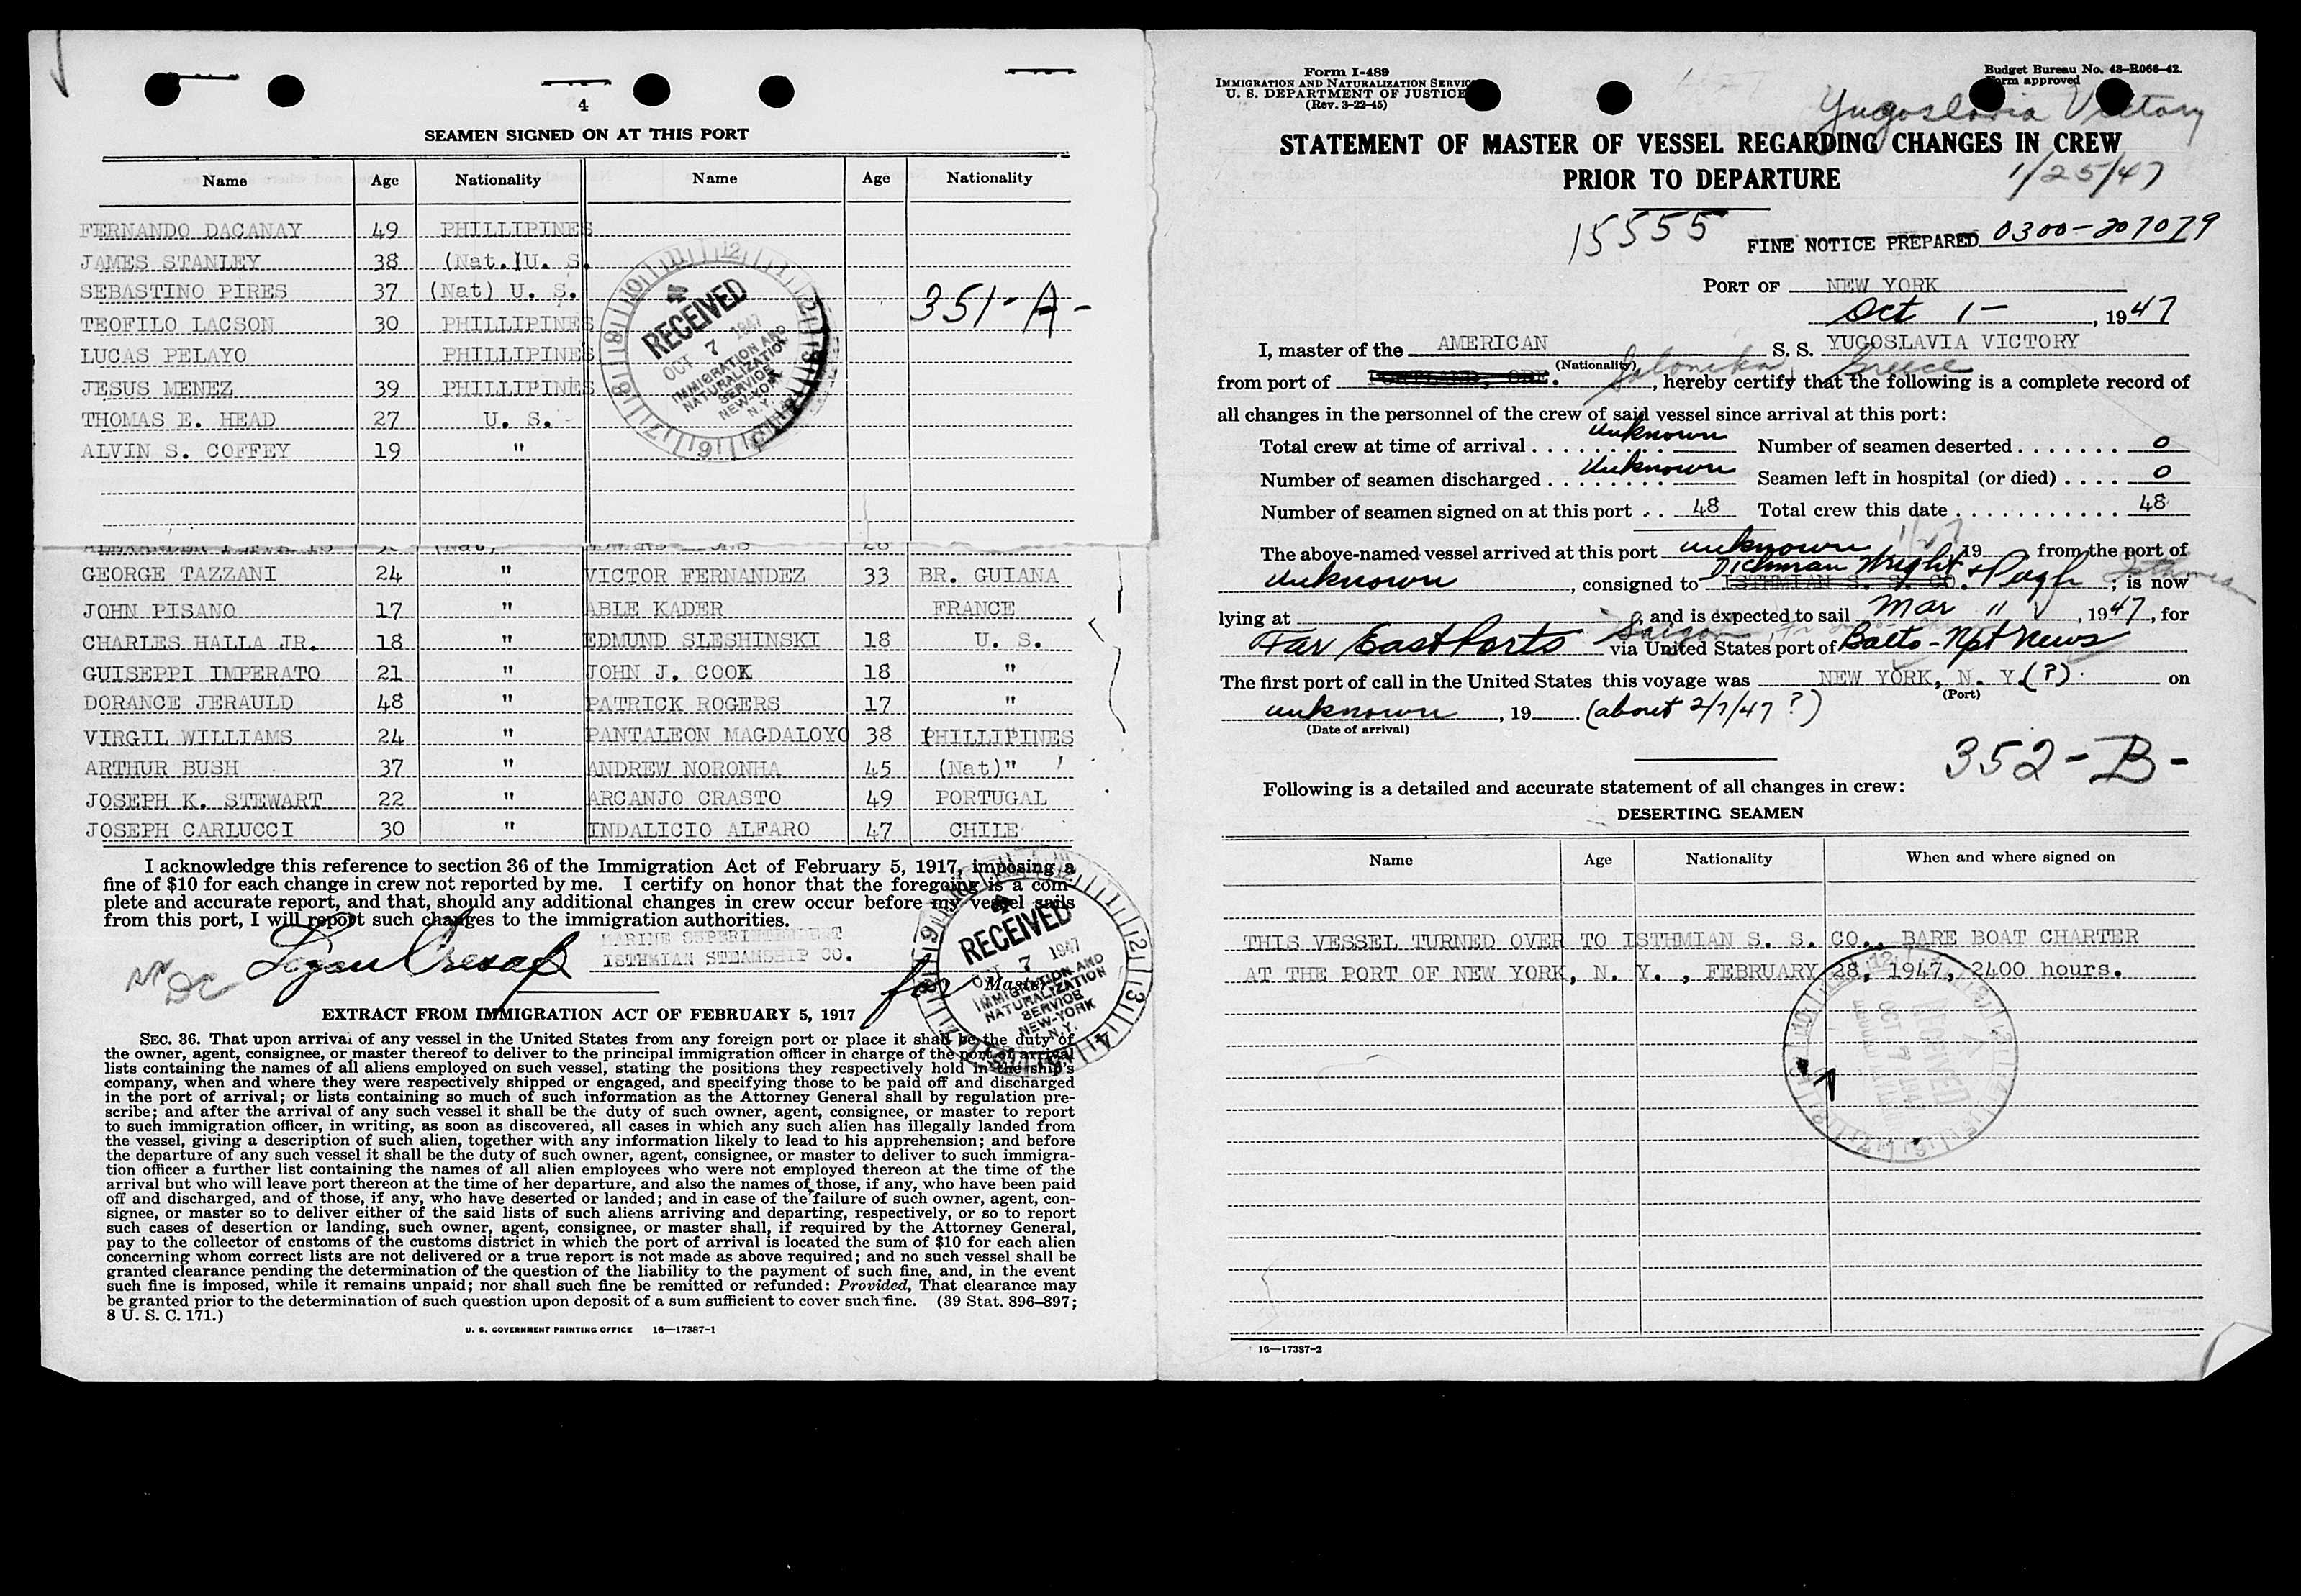 4
SEAMEN SIGNED ON AT THIS PORT
Name Age Nationality Name Age Nationality
FERNANDO DACANAY 49 PHILLIPINES
JAMES STANLEY 38 (Nat.)U. S.
SEBASTINO PIRES 37 (Nat) U. S.
TEOFILO LACSON 30 PHILLIPINES
LUCAS PELAYO PHILLIPINES
JESUS MENEZ 39 PHILLIPINES
THOMAS E. HEAD 27 U. S.
ALVIN S. COFFEY 19 "
351-A-
RECEIVED
OCT 7 1947
IMMIGRATION AND
NATURALIZATION
SERVICE
NEW-YORK
N.Y.
GEORGE TAZZANI 24 " VICTOR FERNANDEZ 33 BR. GUIANA
JOHN PISANO 17 " ABLE KADER FRANCE
CHARLES HALLA JR. 18 " EDMUND SLESHINSKI 18 U. S.
GUISEPPI IMPERATO 21 " JOHN J. COOK 18 "
DORANCE JERAULD 48 " PATRICK ROGERS 17 "
VIRGIL WILLIAMS 24 " PANTALEON MAGDALOYO 38 PHILLIPINES
ARTHUR BUSH 37 " ANDREW NORONHA 45 (Nat)"
JOSEPH K. STEWART 22 " ARCANJO CRASTO 49 PORTUGAL
JOSEPH CARLUCCI 30 " INDALICIO ALFARO 47 CHILE
I acknowledge this reference to section 36 of the Immigration Act of February 5, 1917, imposing a
fine of $10 for each change in crew not reported by me. I certify on honor that the foregoing is a com-
plete and accurate report, and that, should any additional changes in crew occur before my vessel sails
from this port, I will report such changes to the immigration authorities.
MARINE SUPERINTENDENT
ISTHMIAN STEAMSHIP CO.
for Master
RECEIVED
OCT 7 1947
IMMIGRATION AND
NATURALIZATION
SERVICE
NEW-YORK
N.Y.
EXTRACT FROM IMMIGRATION ACT OF FEBRUARY 5, 1917
SEC. 36. That upon arrival of any vessel in the United States from any foreign port or place it shall be the duty of
the owner, agent, consignee, or master thereof to deliver to the principal immigration officer in charge of the port of arrival
lists containing the names of all aliens employed on such vessel, stating the positions they respectively hold in the ship's
company, when and where they were respectively shipped or engaged, and specifying those to be paid off and discharged
in the port of arrival; or lists containing so much of such information as the Attorney General shall by regulation pre-
scribe; and after the arrival of any such vessel it shall be the duty of such owner, agent, consignee, or master to report
to such immigration officer, in writing, as soon as discovered, all cases in which any such alien has illegally landed from
the vessel, giving a description of such alien, together with any information likely to lead to his apprehension; and before
the departure of any such vessel it shall be the duty of such owner, agent, consignee, or master to deliver to such immigra-
tion officer a further list containing the names of all alien employees who were not employed thereon at the time of the
arrival but who will leave port thereon at the time of her departure, and also the names of those, if any, who have been paid
off and discharged, and of those, if any, who have deserted or landed; and in case of the failure of such owner, agent, con-
signee, or master so to deliver either of the said lists of such aliens arriving and departing, respectively, or so to report
such cases of desertion or landing, such owner, agent, consignee, or master shall, if required by the Attorney General,
pay to the collector of customs of the customs district in which the port of arrival is located the sum of $10 for each alien
concerning whom correct lists are not delivered or a true report is not made as above required; and no such vessel shall be
granted clearance pending the determination of the question of the liability to the payment of such fine, and, in the event
such fine is imposed, while it remains unpaid; nor shall such fine be remitted or refunded: Provided, That clearance may
be granted prior to the determination of such question upon deposit of a sum sufficient to cover such fine. (39 Stat. 896–897;
8 U. S. C. 171.)
U. S. GOVERNMENT PRINTING OFFICE 16—17387-1
Form I-489
IMMIGRATION AND NATURALIZATION SERVICE
U. S. DEPARTMENT OF JUSTICE
(Rev. 3-22-45)
Budget Bureau No. 43-R066-42.
Form approved
Yugoslavia Victory
STATEMENT OF MASTER OF VESSEL REGARDING CHANGES IN CREW
PRIOR TO DEPARTURE
1/25/47
15555
FINE NOTICE PREPARED 0300-207079
PORT OF NEW YORK
Oct 1-, 1947
I, master of the AMERICAN S. S. YUGOSLAVIA VICTORY
(Nationality)
from port of PORTLAND, ORE. Salonika, Greece, hereby certify that the following is a complete record of
all changes in the personnel of the crew of said vessel since arrival at this port:
Total crew at time of arrival unknown Number of seamen deserted 0
Number of seamen discharged Unknown Seamen left in hospital (or died) 0
Number of seamen signed on at this port 48 Total crew this date 48
The above-named vessel arrived at this port unknown, 19 from the port of
Unknown, consigned to ISTHMIAN S. S. CO. Dichman Wright & Pugh Isthmian; is now
lying at , and is expected to sail Mar 11, 1947, for
Far East Ports Saigon via United States port of Balto-Npt News
The first port of call in the United States this voyage was NEW YORK, N. Y. (?) on
(Port)
unknown, 19 (about 2/7/47 ?)
(Date of arrival)
352-B-
Following is a detailed and accurate statement of all changes in crew:
DESERTING SEAMEN
Name Age Nationality When and where signed on
THIS VESSEL TURNED OVER TO ISTHMIAN S. S. CO., BARE BOAT CHARTER
AT THE PORT OF NEW YORK, N. Y. , FEBRUARY 28, 1947, 2400 hours.
RECEIVED
OCT 7 1947
16—17387-2